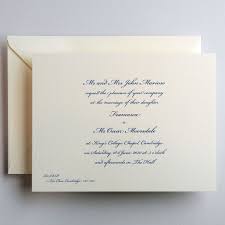 Mr and Mrs John Marlow
request the pleasure of your company
at the marriage of their daughter
Francesca
to
Mr Oscar
at King's College Chapel, Cambridge
on Saturday 6th June 2020 at 2 o'clock
and afterwards in The Hall
R.S.V.P.